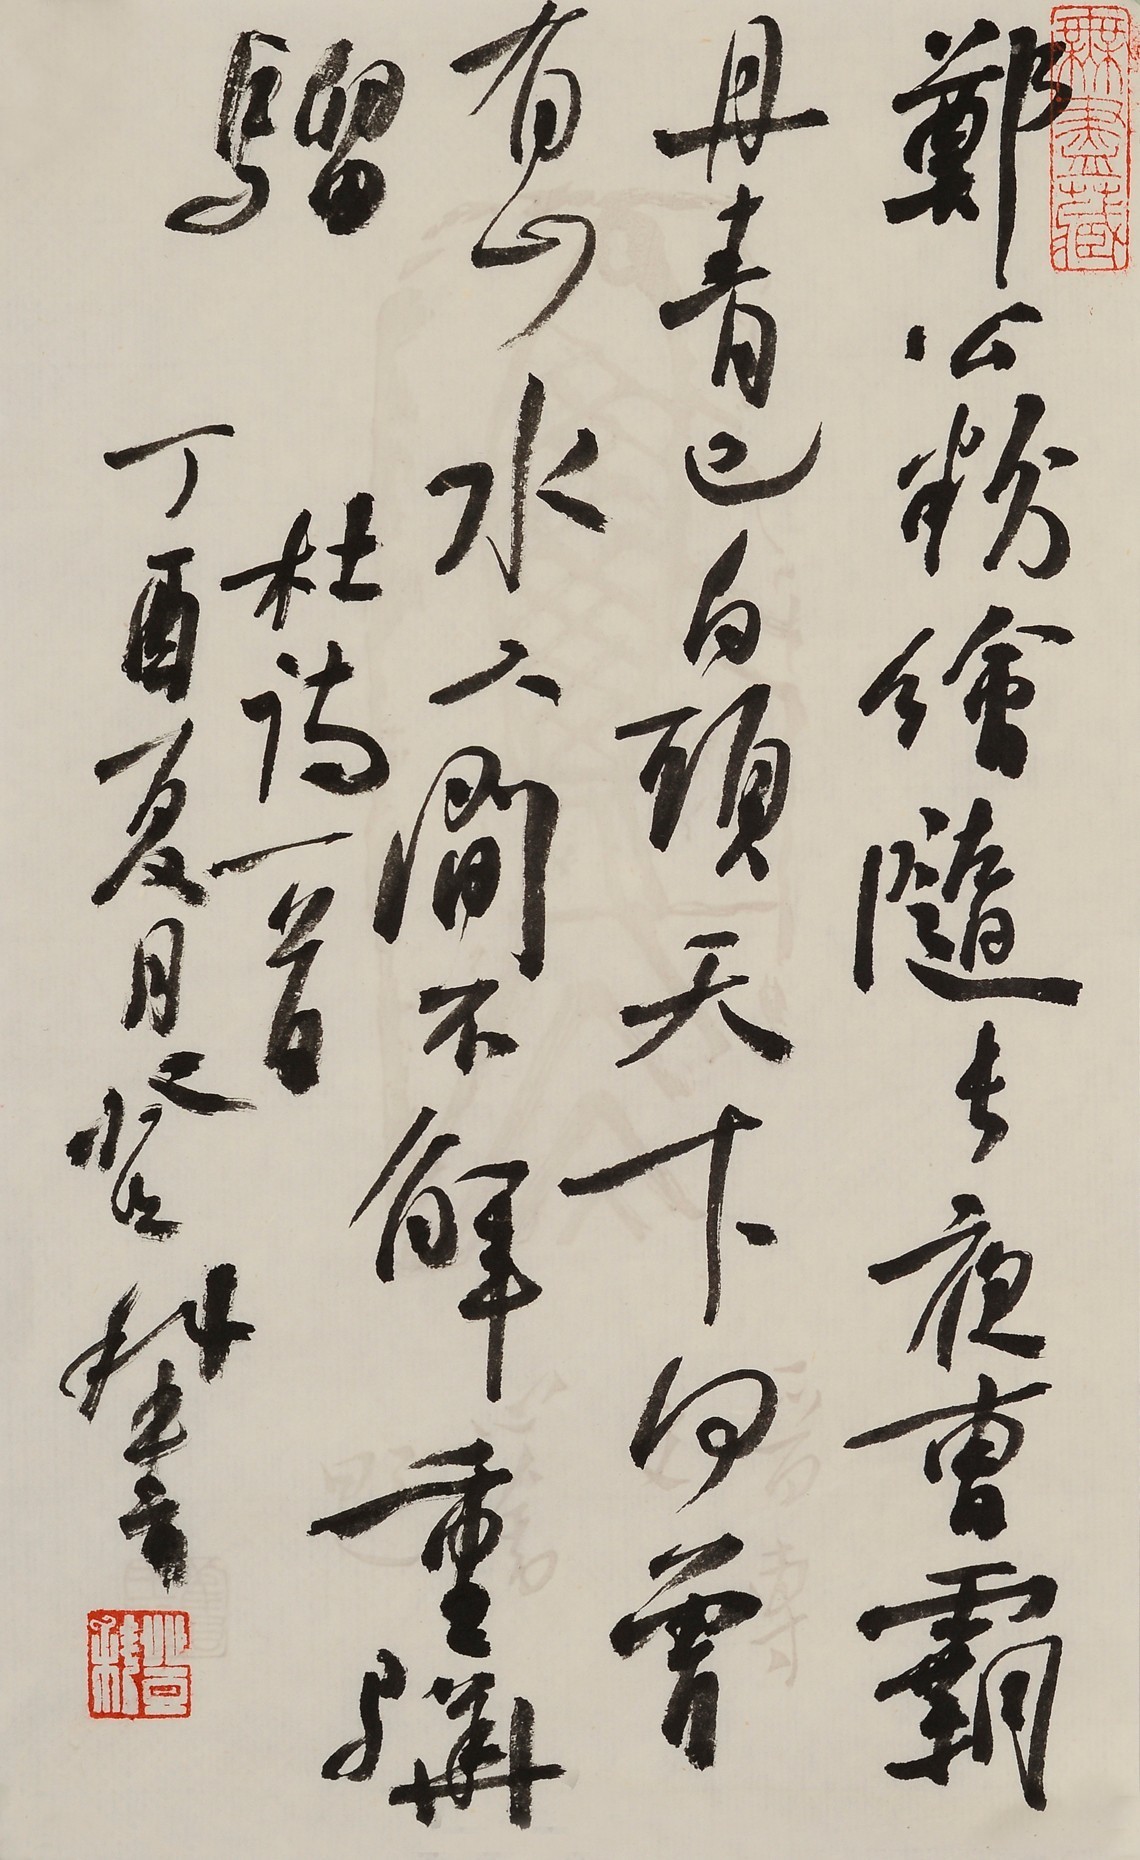 無盡藏
鄭公粉繪隨長夜曹霸
丹青已白頭天下何曾
有山水人間不解重驊
騮
杜詩一首
丁酉夏月登科書